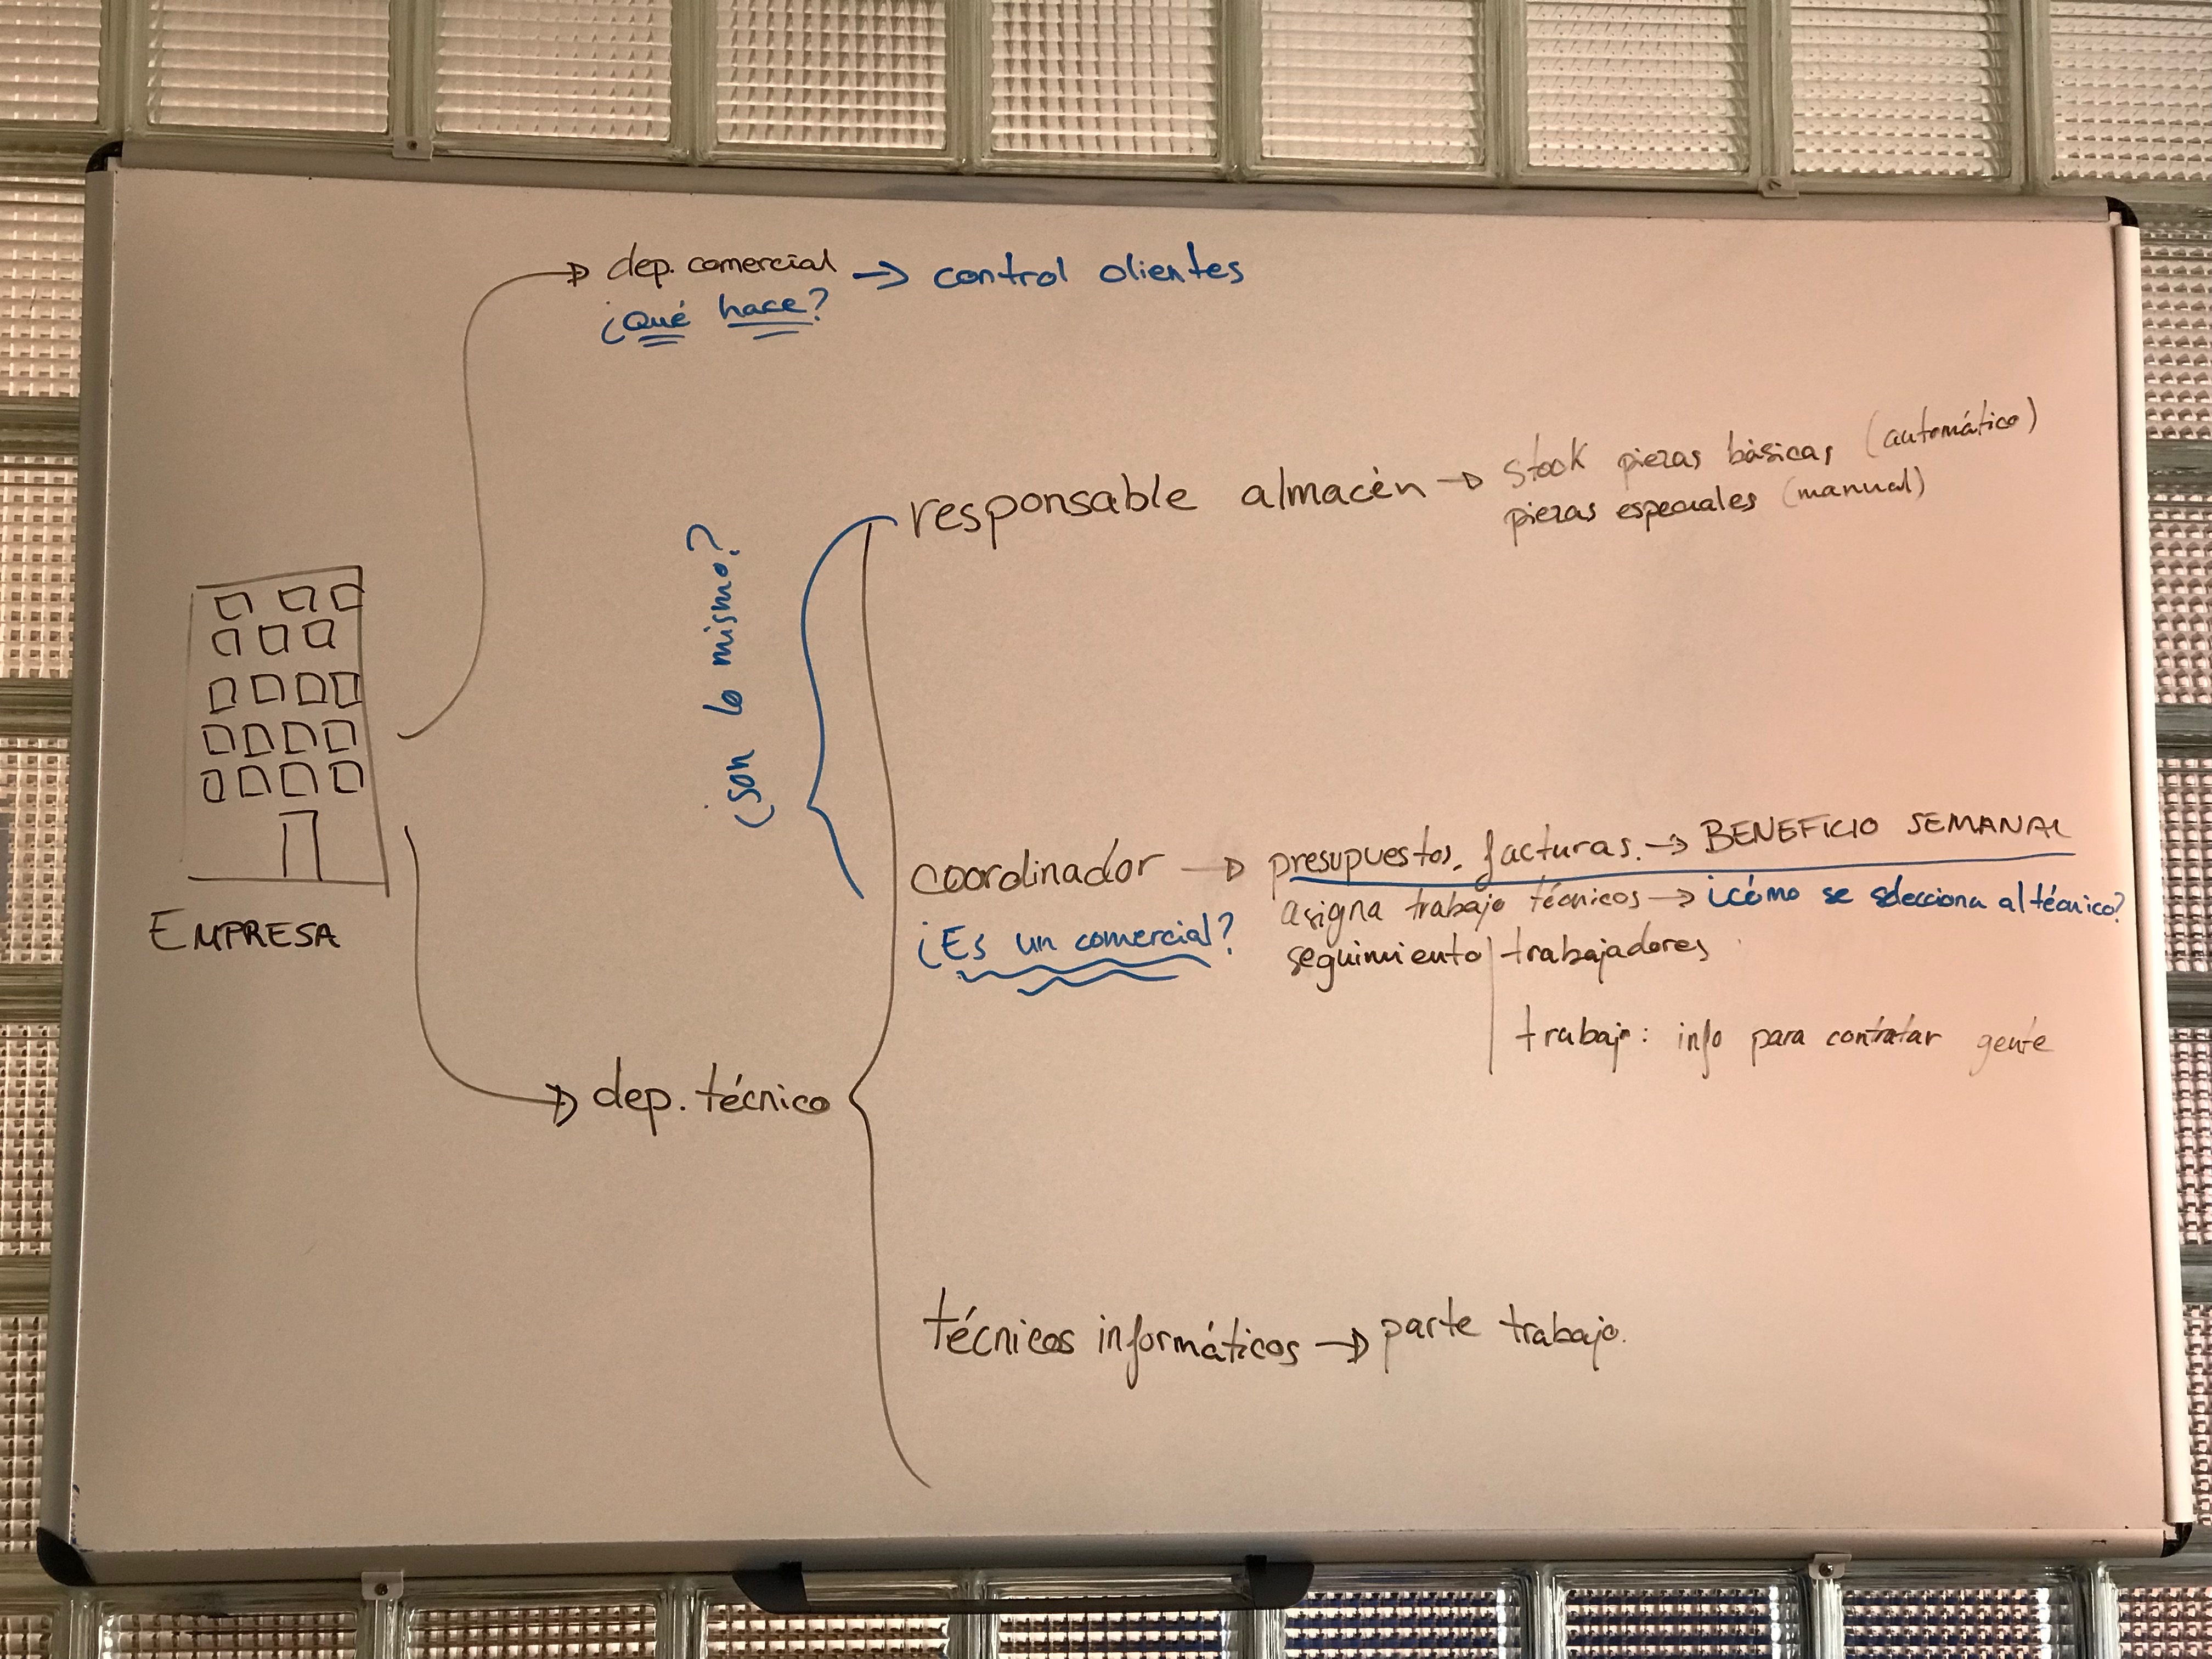 dep. comercial → control clientes
¿Qué hace?
responsable almacén → stock piezas básicas (automático)
piezas especiales (manual)
¿son lo mismo?
EMPRESA
coordinador → presupuestos, facturas. → BENEFICIO SEMANAL
¿Es un comercial?
asigna trabajo técnicos → ¿cómo se selecciona al técnico?
seguimiento trabajadores
trabajo: info para contratar gente
dep. técnico
técnicos informáticos → parte trabajo.